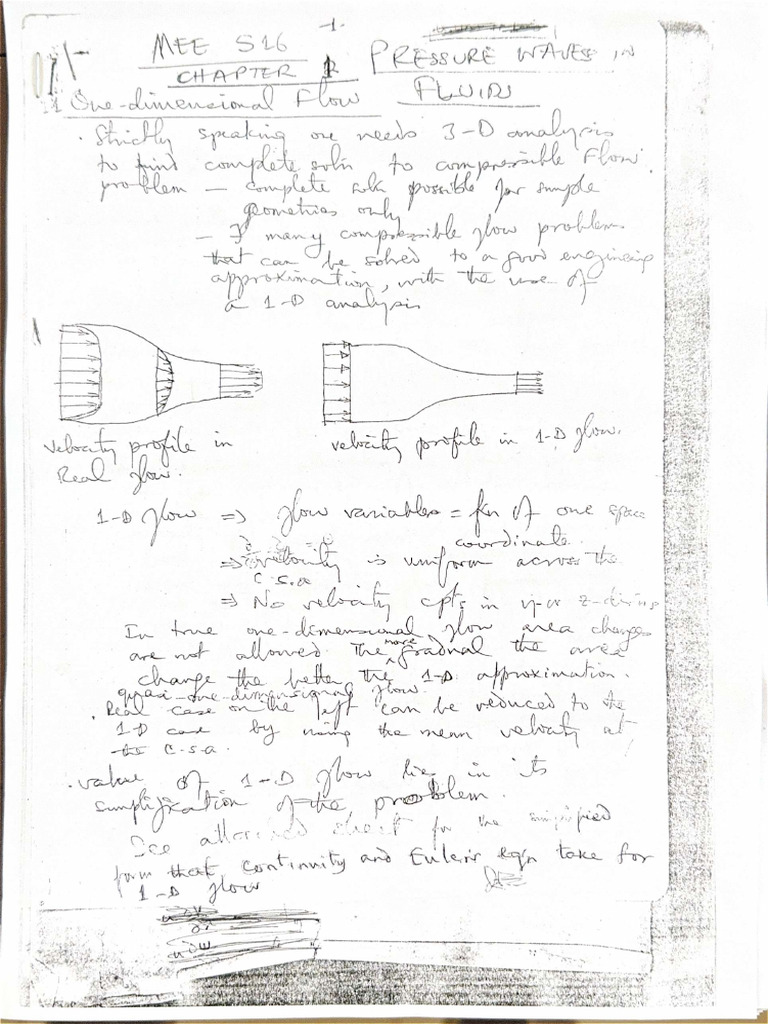 -1-
MEE 516 PRESSURE WAVES IN
CHAPTER 1 FLUIDS
1 One-dimensional Flow
· Strictly speaking one needs 3-D analysis
to find complete soln to compressible Flow.
problem – complete soln possible for simple
geometries only
– ∃ many compressible flow problems
that can be solved to a good engineering
approximation, with the use of
a 1-D analysis
velocity profile in
Real flow.
velocity profile in 1-D flow.
1-D flow ⇒ flow variables = fn of one space
coordinate.
⇒ velocity is uniform across the
c.s.a
⇒ No velocity cpts in y-or z-dirins
In true one-dimensional flow area changes
are not allowed. The more gradual the area
change the better the 1-D approximation.
quasi-one-dimensional flow.
· Real case on the left can be reduced to the
1-D case by using the mean velocity at
the c.s.a.
· value of 1-D flow lies in its
simplification of the problem.
See attached sheet for the simplified
form that continuity and Euler's eqn take for
1-D flow